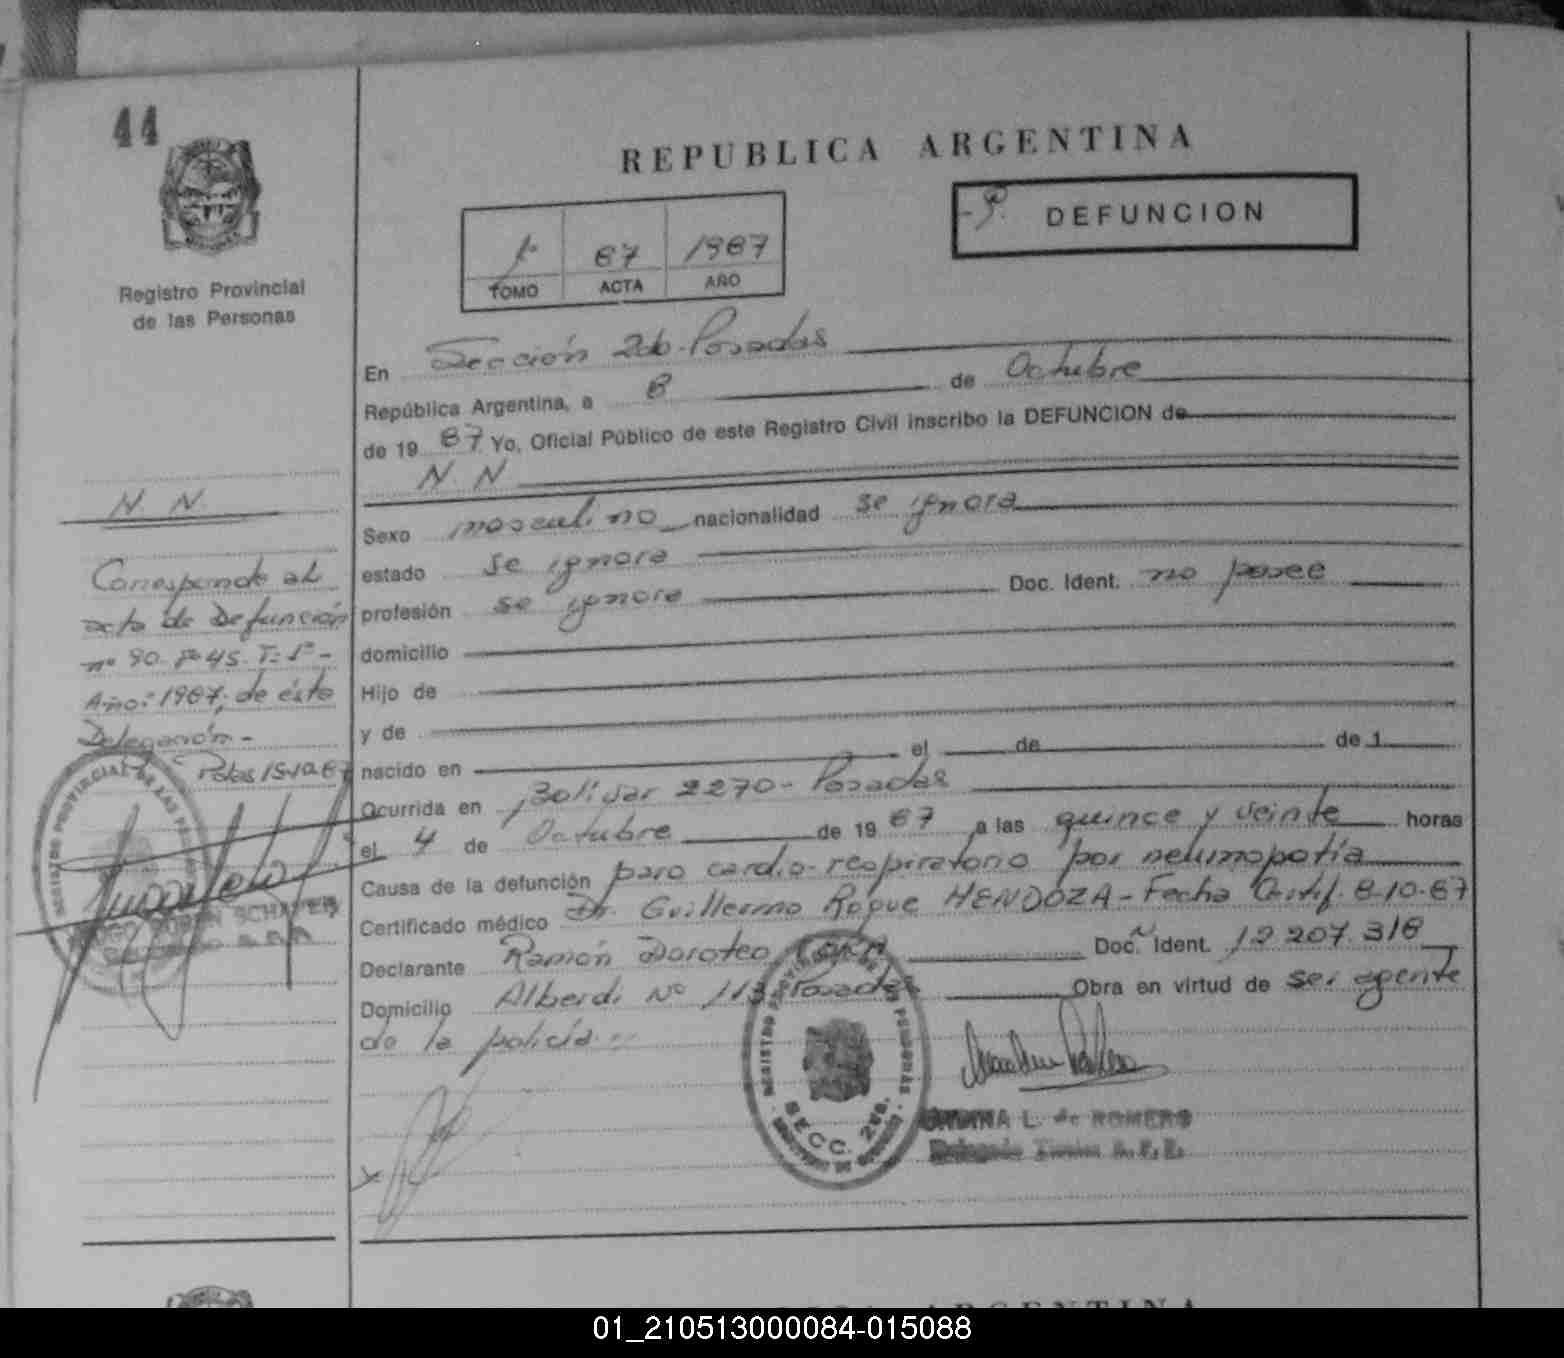 44
REPUBLICA ARGENTINA
DEFUNCION
1º 87 1987
TOMO ACTA AÑO
Registro Provincial
de las Personas
En Sección 2da. Posadas
República Argentina, a 8 de Octubre
de 19 87. Yo, Oficial Público de este Registro Civil inscribo la DEFUNCION de
N. N
Sexo masculino nacionalidad se ignora
estado se ignora
profesión se ignora Doc. Ident. no posee
domicilio
Hijo de
y de
nacido en el de de 1
Ocurrida en Bolívar 2270 - Posadas
el 4 de Octubre de 19 87 a las quince y veinte horas
Causa de la defunción paro cardio-respiratorio por neumopatía
Certificado médico Dr. Guillermo Roque MENDOZA - Fecha Certif. 8-10-87
Declarante Ramón Doroteo Doc. Ident. 12.207.318
Domicilio Alberdi Nº 113 Posadas Obra en virtud de ser agente
de la policía
N. N.
Corresponde al
acta de Defunción
nº 90. Fº 45. T: 1º -
Año: 1987, de ésta
Delegación -
Pdas 15-10-87
REGISTRO PROVINCIAL DE LAS PERSONAS
SCHAFER
REGISTRO PROVINCIAL DE LAS PERSONAS
SECC. 2da.
L. de ROMERO
REPUBLICA ARGENTINA
01_210513000084-015088